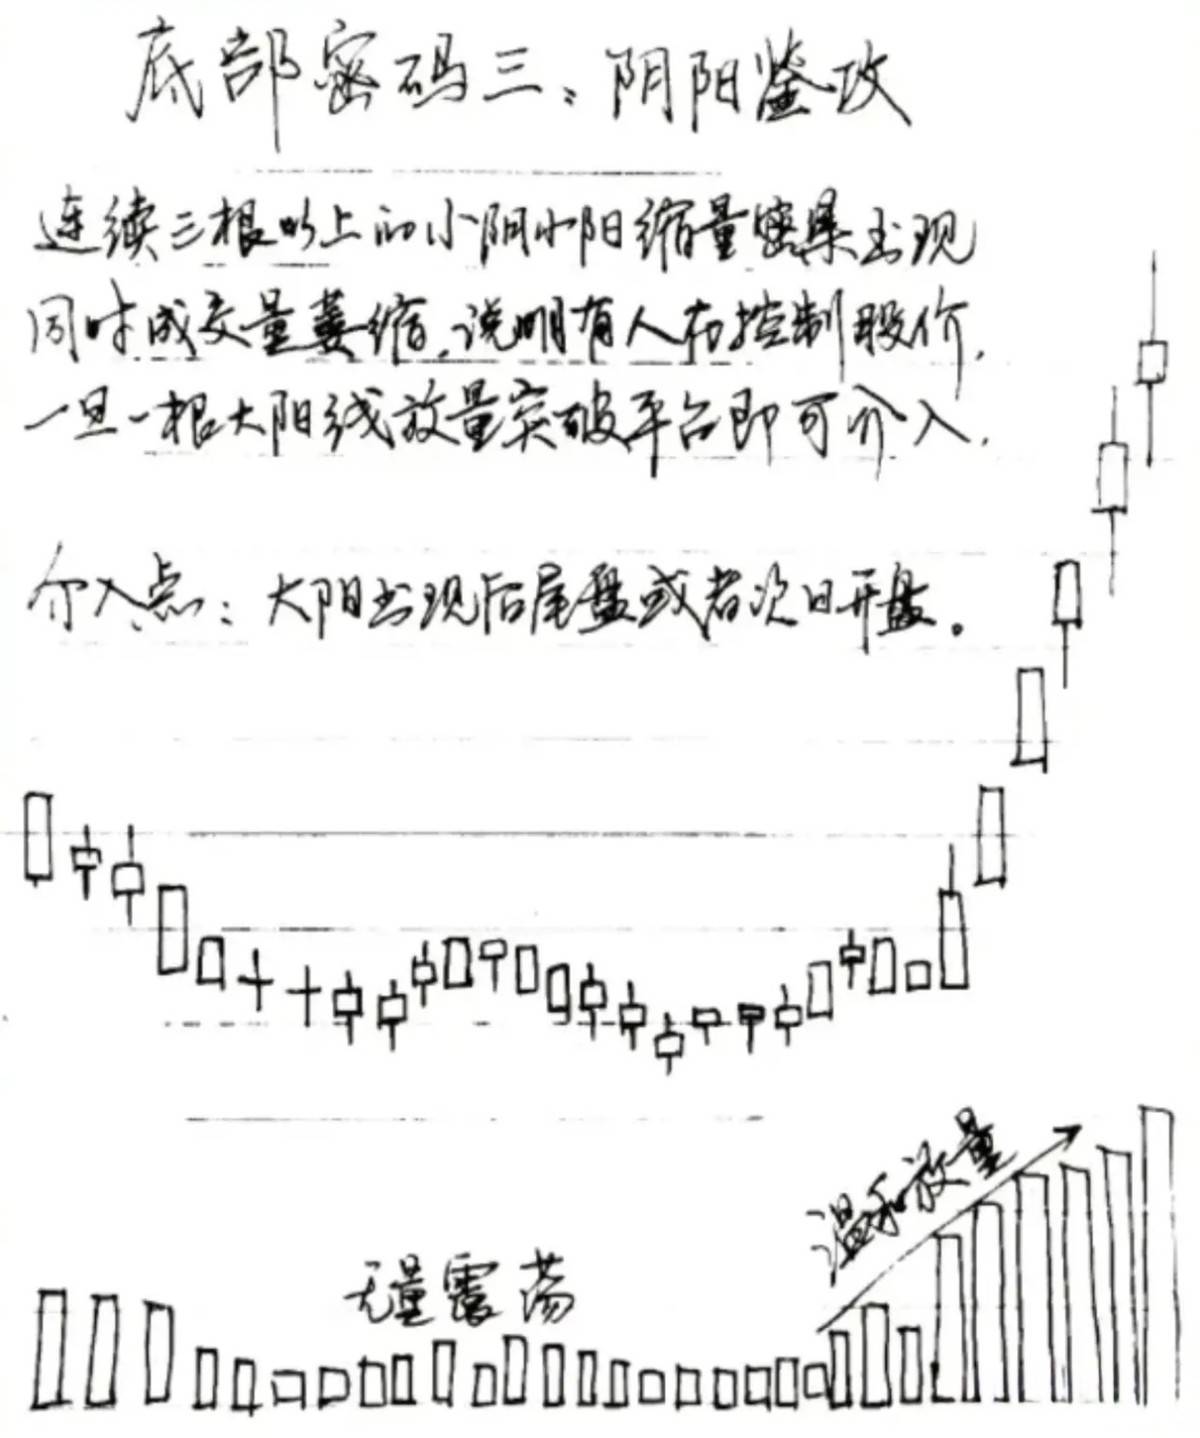 底部密码三:阴阳鉴攻
连续三根以上的小阴小阳缩量密集出现
同时成交量萎缩,说明有人在控制股价,
一旦一根大阳线放量突破平台即可介入.
介入点:大阳出现后尾盘或者次日开盘。
温和放量
无量震荡